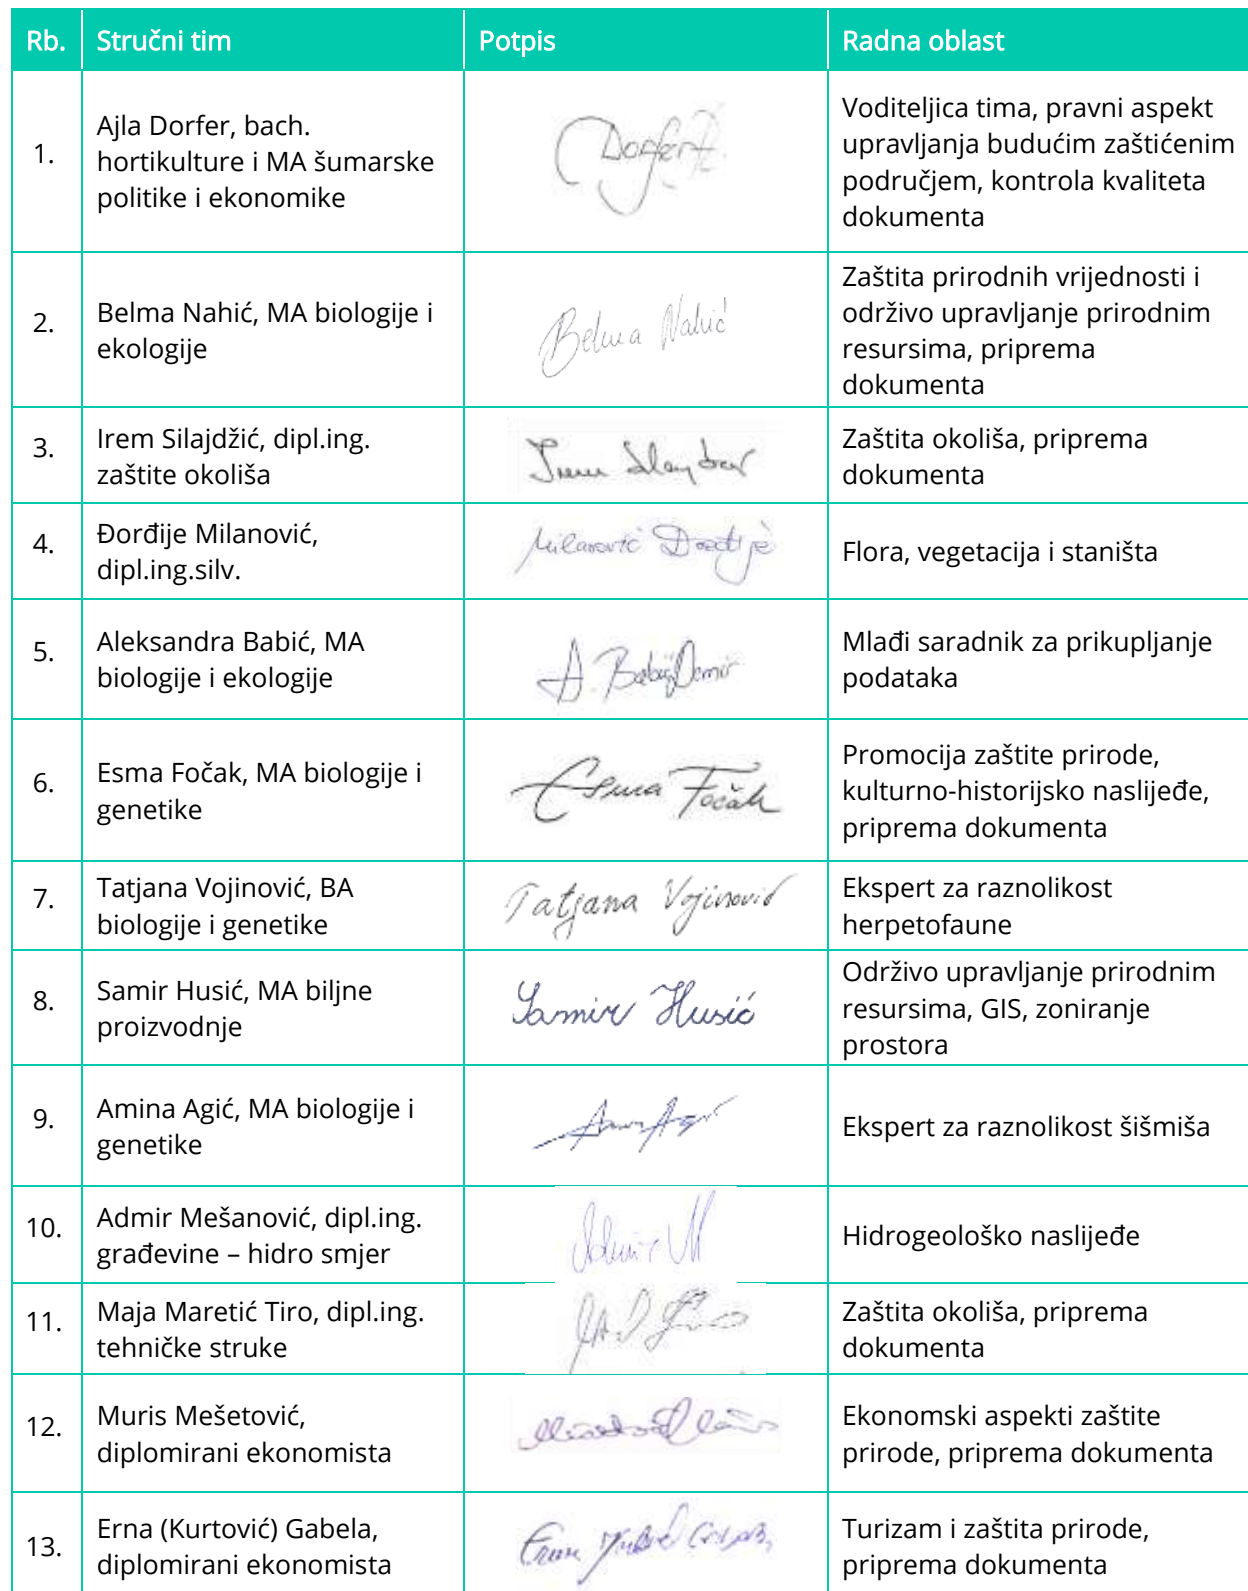 Rb. Stručni tim Potpis Radna oblast
1.
Ajla Dorfer, bach.
hortikulture i MA šumarske
politike i ekonomike
Dorfer A.
Voditeljica tima, pravni aspekt
upravljanja budućim zaštićenim
područjem, kontrola kvaliteta
dokumenta
2.
Belma Nahić, MA biologije i
ekologije
Belma Nahić
Zaštita prirodnih vrijednosti i
održivo upravljanje prirodnim
resursima, priprema
dokumenta
3.
Irem Silajdžić, dipl.ing.
zaštite okoliša
Zaštita okoliša, priprema
dokumenta
4.
Đorđije Milanović,
dipl.ing.silv.
Milanović Đorđije
Flora, vegetacija i staništa
5.
Aleksandra Babić, MA
biologije i ekologije
A. Babić
Mlađi saradnik za prikupljanje
podataka
6.
Esma Fočak, MA biologije i
genetike
Esma Fočak
Promocija zaštite prirode,
kulturno-historijsko naslijeđe,
priprema dokumenta
7.
Tatjana Vojinović, BA
biologije i genetike
Tatjana Vojinović
Ekspert za raznolikost
herpetofaune
8.
Samir Husić, MA biljne
proizvodnje
Samir Husić
Održivo upravljanje prirodnim
resursima, GIS, zoniranje
prostora
9.
Amina Agić, MA biologije i
genetike
Ekspert za raznolikost šišmiša
10.
Admir Mešanović, dipl.ing.
građevine – hidro smjer
Admir M
Hidrogeološko naslijeđe
11.
Maja Maretić Tiro, dipl.ing.
tehničke struke
Zaštita okoliša, priprema
dokumenta
12.
Muris Mešetović,
diplomirani ekonomista
Ekonomski aspekti zaštite
prirode, priprema dokumenta
13.
Erna (Kurtović) Gabela,
diplomirani ekonomista
Turizam i zaštita prirode,
priprema dokumenta